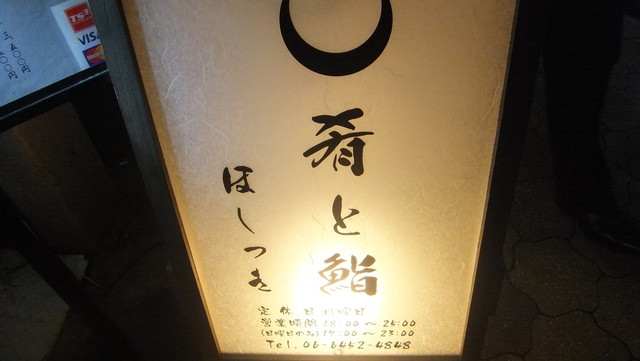 肴と鮨
ほしつき
定休日 月曜日
営業時間 18:00〜25:00
(日曜日のみ) 17:00〜23:00
Tel. 06-6452-4848
VISA